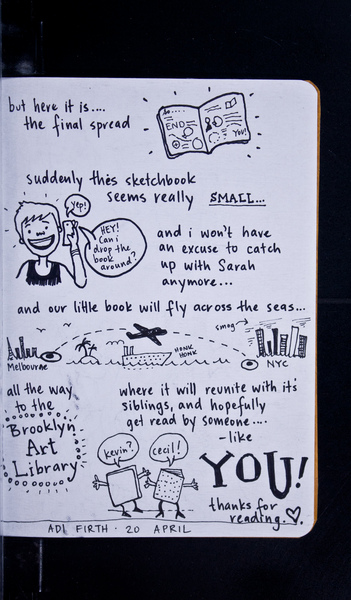 but here it is....
the final spread
END
YOU!
suddenly this sketchbook
seems really SMALL...
Yep!
HEY!
Can i
drop the
book
around?
and i won't have
an excuse to catch
up with Sarah
anymore...
and our little book will fly across the seas...
smog
HONK
HONK
Melbourne
NYC
all the way
to the
Brooklyn
Art
Library
where it will reunite with it's
siblings, and hopefully
get read by someone....
-like
YOU!
kevin?
cecil!
thanks for
reading.
ADI FIRTH · 20 APRIL